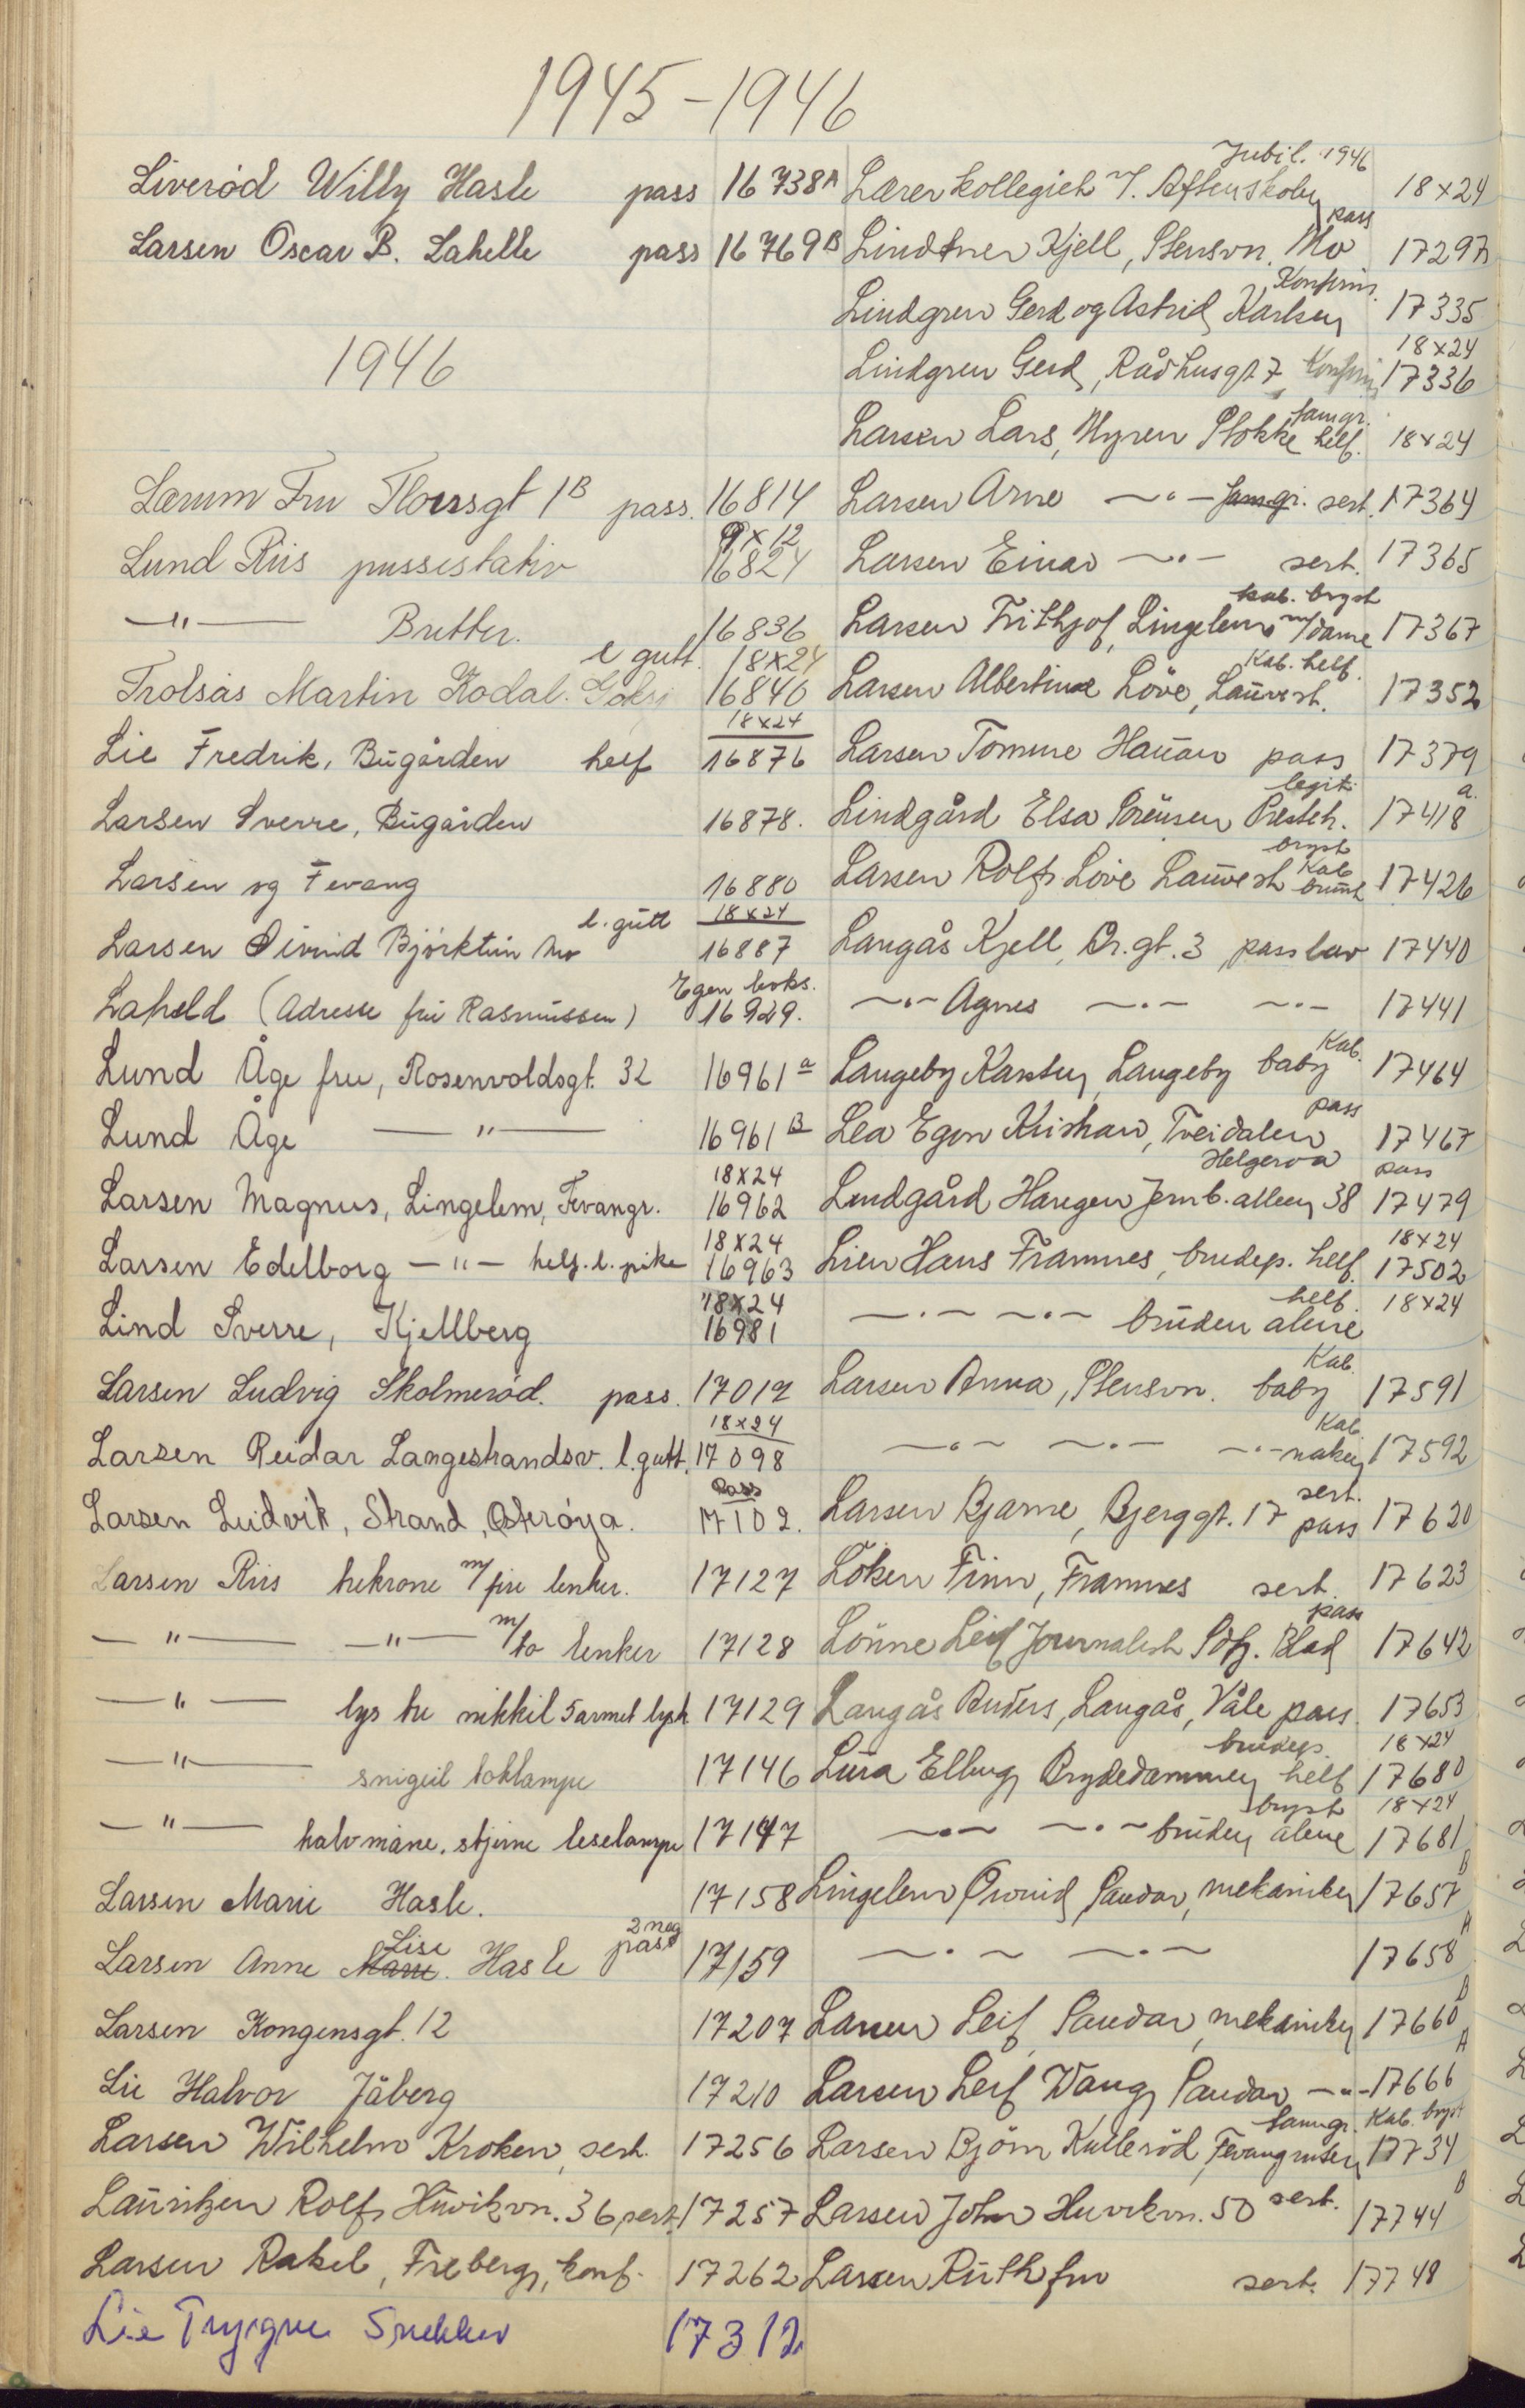 1945-1946
Liverød Willy Hasle pass 16738A
Larsen Oscar B. Lahelle pass 16769B
1946
Lærum Fru Thorsgt 1B pass. 16814
9x12
Lund Riis pussestativ 16824
—"— Bretter. 16836
l gutt. 18x24
Trolsås Martin Kodal. 16840
18x24
Lie Fredrik, Bugården helf 16876
Larsen Sverre, Bugården 16878.
Larsen og Fevang 16880
l. gutt 18x24
Larsen Øivind Bjørktun Mo 16887
Egen boks.
Laheld (Adresse fru Rasmussen) 16929.
Lund Åge fru, Rosenvoldsgt. 32 16961a
Lund Åge —"— 16961B
18x24
Larsen Magnus, Lingelem, Fevangr. 16962
18x24
Larsen Edelborg —"— helf. l. pike 16963
18x24
Lind Sverre, Kjellberg 16981
Larsen Ludvig Skolmerød. pass. 17012
18x24
Larsen Reidar Langestrandsv. l. gutt. 17098
Pass
Larsen Ludvik, Strand, Østerøya. 17102.
Larsen Riis trekrone m/fire lenker. 17127
—"— —"— m/to lenker 17128
—"— lys tre nikkil 5 armet lyst 17129
—"— snigeil boklampe 17146
—"— halvmåne. stjerne leselampe 17147
Larsen Marie Hasle. 17158
Lise 2 neg
Larsen Anne Marie. Hasle pass 17159
Larsen Kongensgt. 12 17207
Lie Halvor Jåberg 17210
Larsen Wilhelm Kroken, sert. 17256
Lauritzen Rolf, Huvikvn. 36, sert. 17257
Larsen Rakel, Freberg, konf. 17262
Lie Trygve Snekker 17312
Jubil. 1946
Lærerkollegiet v/. Aftenskolen 18x24
pass
Lindtner Kjell, Stensvn. Mo 17297B
Konfirm.
Lindgren Gerd og Astrid Karlsen 17335
18x24
Lindgren Gerd, Rådhusgt 7, Konfirm 17336
famgr.
Larsen Lars, Myren Stokke helf. 18x24
Larsen Arne —"— famgr. sert. 17364
Larsen Einar —"— sert. 17365
kab. bryst
Larsen Frithjof, Lingelem m/dame 17367
Kab. helf.
Larsen Albertine Løve, Lauvest. 17352
Larsen Tomine Hauan pass 17379
legit. a.
Lindgård Elsa Sørensen Presteh. 17418
bryst
Kab
Larsen Rolf, Løve Lauvest brunt 17426
Langås Kjell, Dr. gt. 3, pass lav 17440
—"— Agnes —"— —"— 17441
Kab.
Langeby Karsten, Langeby baby 17464
pass
Lea Egon Kristian, Tveidalen 17467
Helgeroa pass
Lindgård Haregen Jernb. alleen 38 17479
18x24
Lien Hans Framnes, brudep. helf. 17502
helf. 18x24
—"— —"— bruden alene
Kab.
Larsen Anna, Stensvn. baby 17591
Kab.
—"— —"— —"— naken 17592
sert.
Larsen Bjarne, Bjerggt. 17 pass 17620
Løken Finn, Framnes sert. 17623
pass
Lønne Leif Journalist Sdfj. Blad 17642
Langås Anders, Langås, Våle pass 17653
brudep. 18x24
Lura Elbury Brydedammen helf 17680
bryst 18x24
—"— —"— bruden alene 17681
B
Lingelem Øivind Sandar, mekaniker 17657
A
—"— —"— 17658
B
Larsen Leif Sandar, mekaniker 17660
A
Larsen Leif Wang Sandar —"— 17666
famgr. Kab. bryst
Larsen Bjørn Kullerød, Fevangruten 17734
B
Larsen John Huvikvn. 50 sert. 17744
Larsen Ruth fru sert. 17748